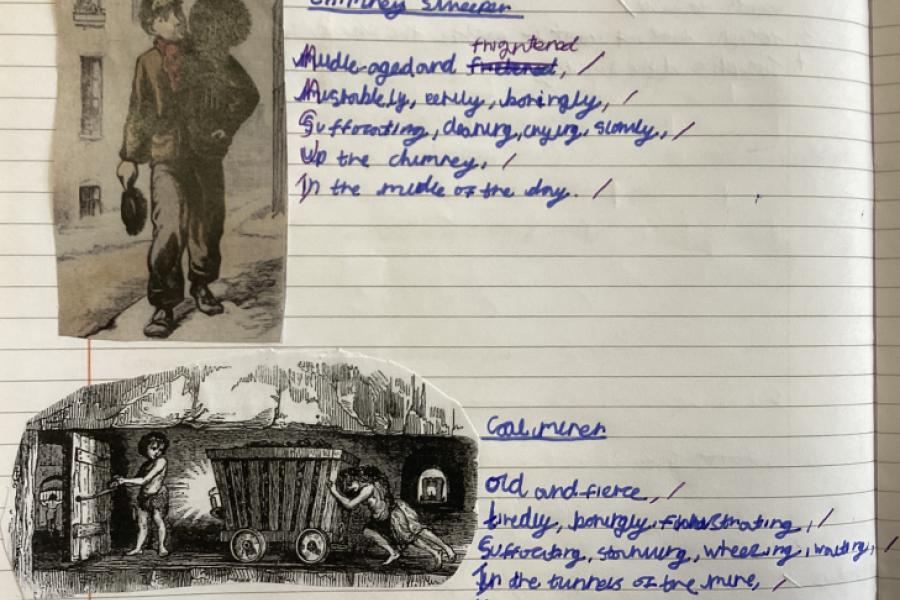 Chimney Sweeper
frightened
Midle-aged and frietened, /
Misrablely, eerily, boringly, /
Suffocating, crying, slowly, /
Up the chimney, /
In the midle of the day. /
Coal miner
Old and fierce, /
tiredly, boringly, /
Suffocating, wheezing, waiting, /
In the tunnels of the mine, /